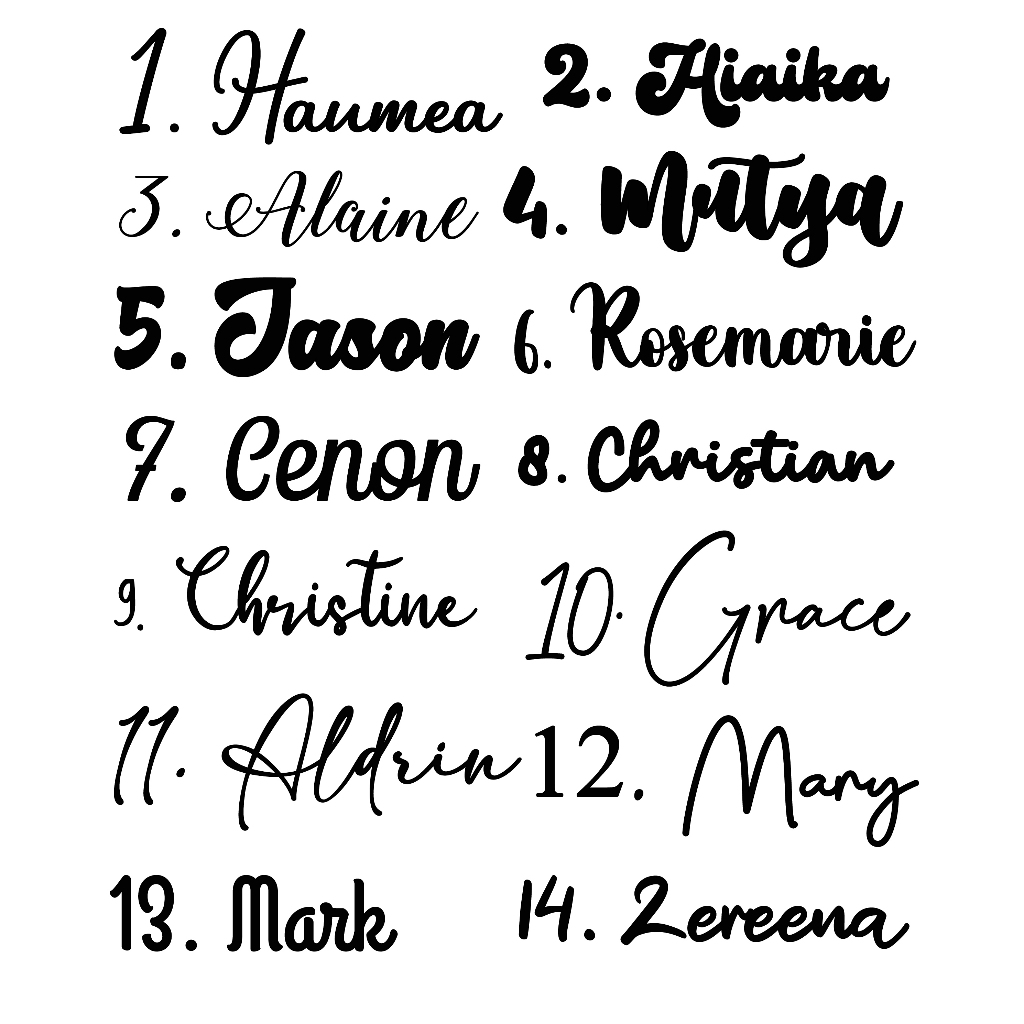 1. Haumea 2. Hiaika
3. Alaine 4. Mutya
5. Jason 6. Rosemarie
7. Cenon 8. Christian
9. Christine 10. Grace
11. Aldrin 12. Mary
13. Mark 14. Zereena